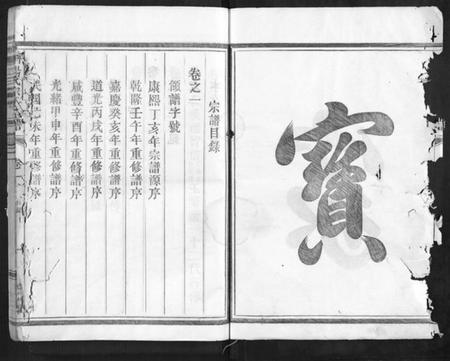 寶
宗譜目錄
卷之一
領譜字號
康熙丁亥年宗譜源序
乾隆壬午年重修譜序
嘉慶癸亥年重修譜序
道光丙戌年重修譜序
咸豐辛酉年重修譜序
光緒甲申年重修譜序
民國己未年重修譜序